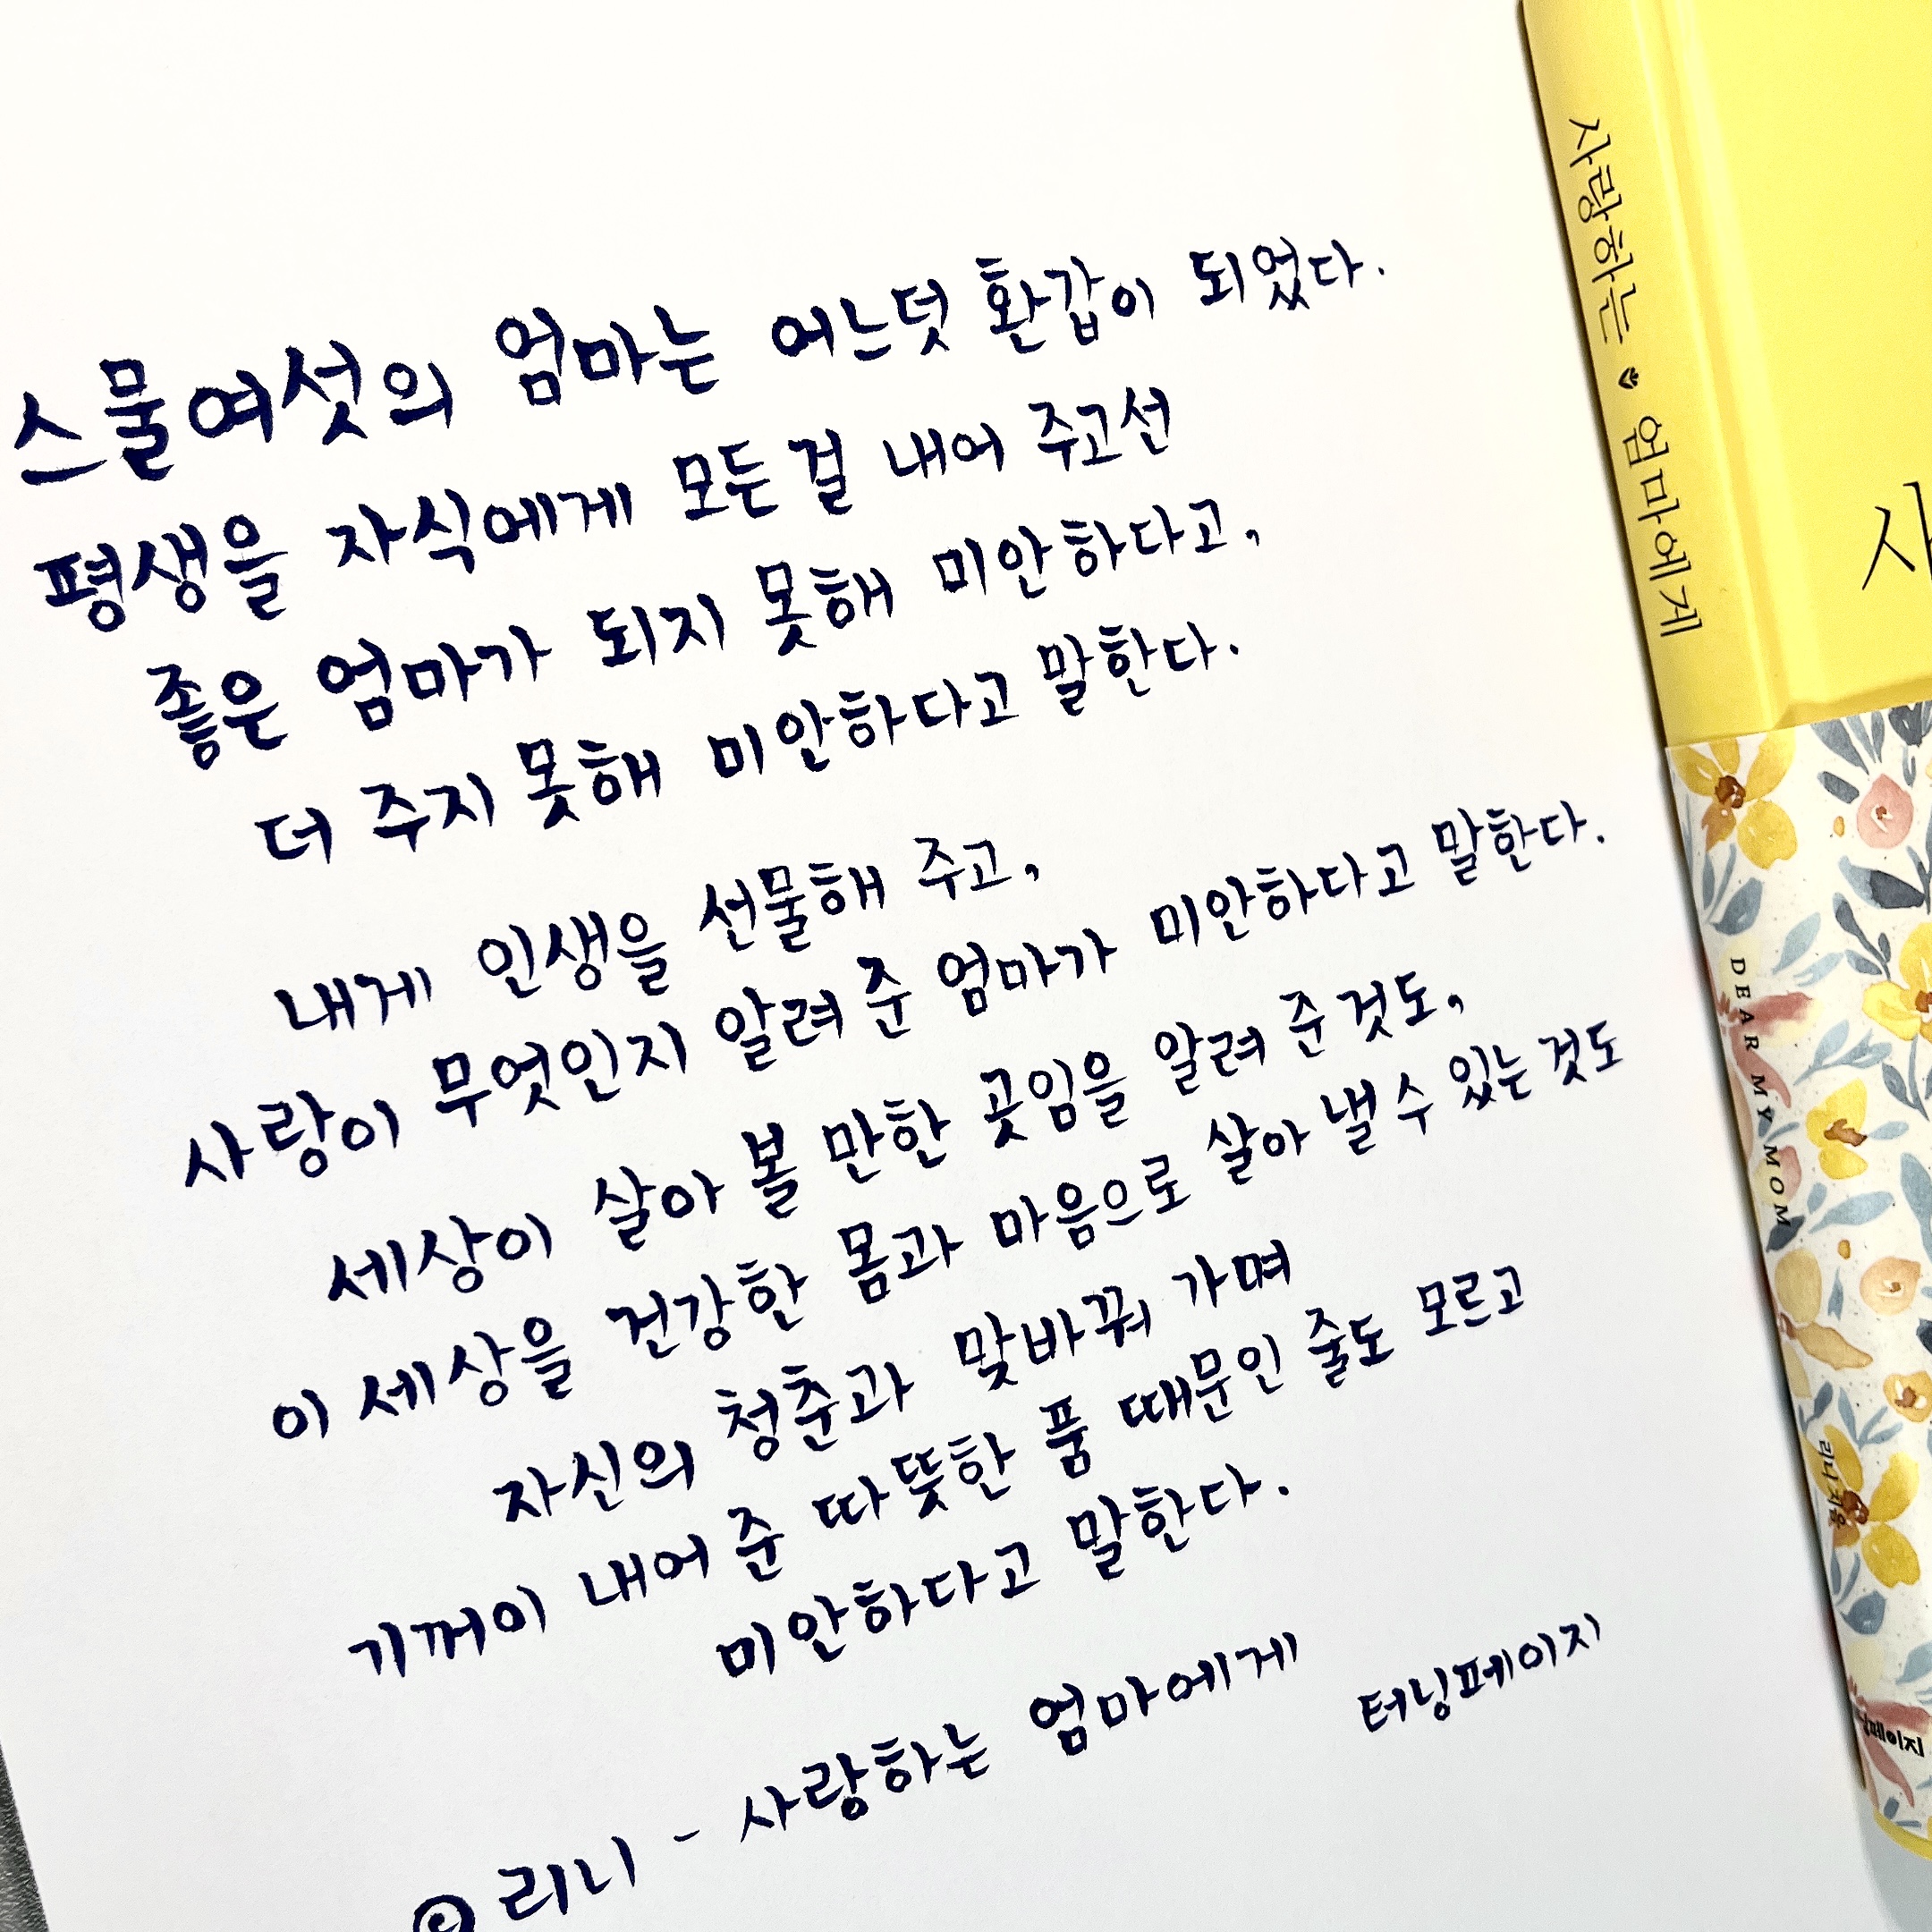 스물여섯의 엄마는 어느덧 환갑이 되었다.
평생을 자식에게 모든 걸 내어 주고선
좋은 엄마가 되지 못해 미안하다고,
더 주지 못해 미안하다고 말한다.
내게 인생을 선물해 주고,
사랑이 무엇인지 알려 준 엄마가 미안하다고 말한다.
세상이 살아 볼 만한 곳임을 알려 준 것도,
이 세상을 건강한 몸과 마음으로 살아 낼 수 있는 것도
자신의 청춘과 맞바꿔 가며
기꺼이 내어 준 따뜻한 품 때문인 줄도 모르고
미안하다고 말한다.
리니 - 사랑하는 엄마에게 터닝페이지
사랑하는 엄마에게
DEAR MY MOM
리니 지음
페이지
사